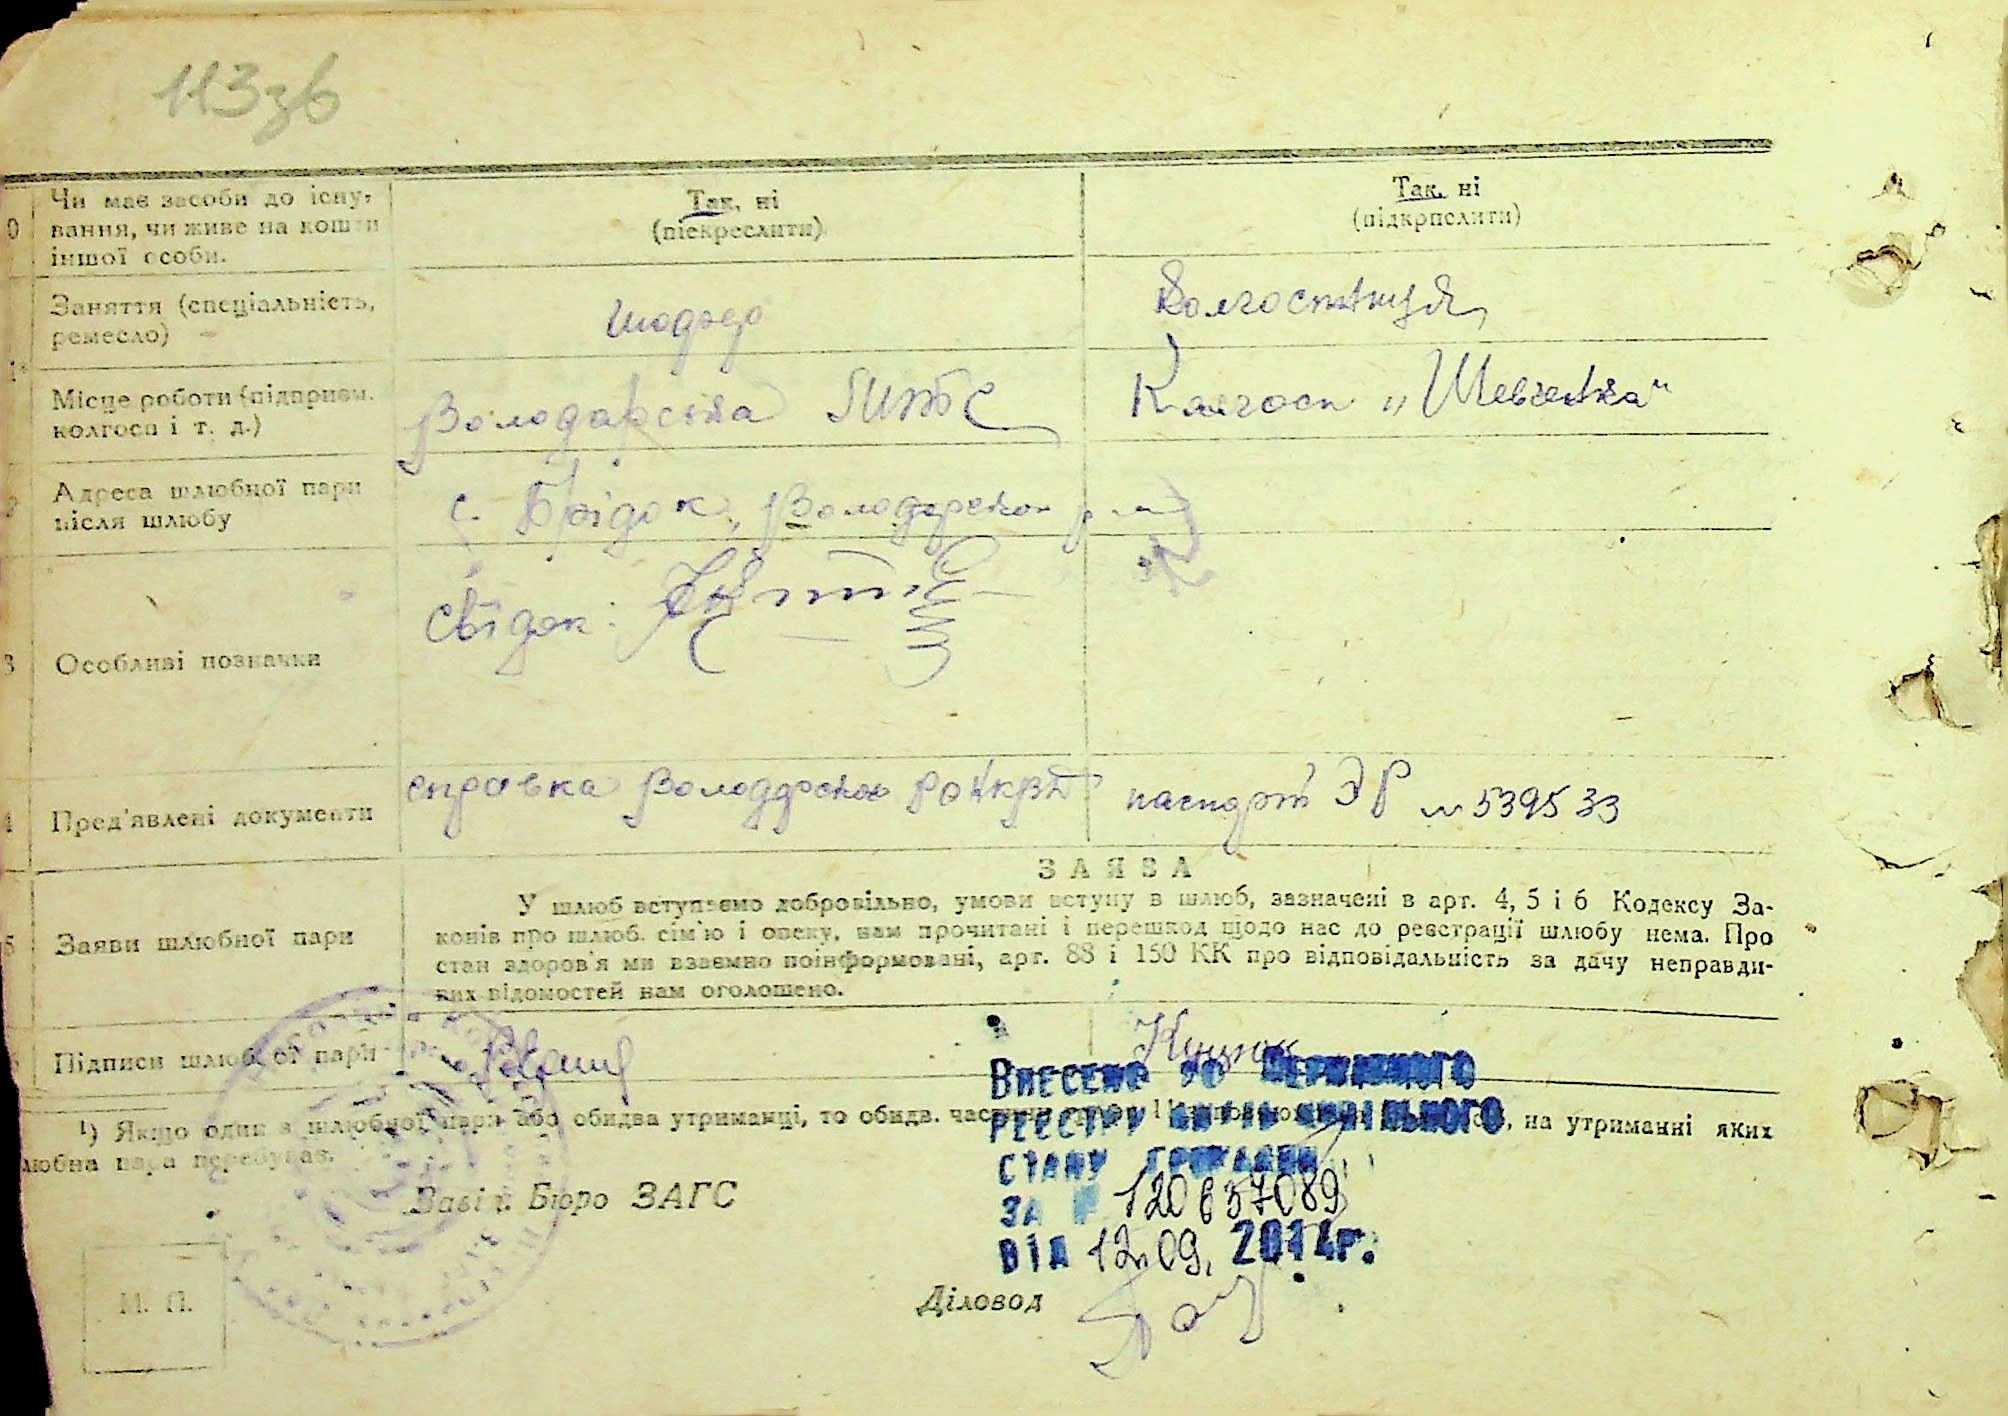 113зв
0 Чи має засоби до існу-
вання, чи живе на кошти
іншої особи.
Так, ні
(підкреслити)
Так, ні
(підкреслити)
Заняття (спеціальність,
ремесло)
Колгоспниця
Місце роботи (підприєм.
колгосп і т. д.)
Володарська МТС
Колгосп „Шевченка"
Адреса шлюбної пари
після шлюбу
с. Володарського р-ну
Особливі позначки
свідок:
Пред'явлені документи
справка Володарського РОНКВД
паспорт ЭР № 539533
ЗАЯВА
Заяви шлюбної пари
У шлюб вступаємо добровільно, умови вступу в шлюб, зазначені в арт. 4, 5 і 6 Кодексу За-
конів про шлюб. сім'ю і опеку, нам прочитані і перешкод щодо нас до реєстрації шлюбу нема. Про
стан здоров'я ми взаємно поінформовані, арт. 88 і 150 КК про відповідальність за дачу неправди-
вих відомостей нам оголошено.
Підписи шлюбної пари
¹) Якщо один з шлюбної пари або обидва утриманці, то обидв. на утриманні яких
любна пара перебуває.
Внесено до Державного
реєстру актів цивільного
стану громадян
за № 120637089
від 12.09. 2014р.
Завід. Бюро ЗАГС
М. П.
Діловод